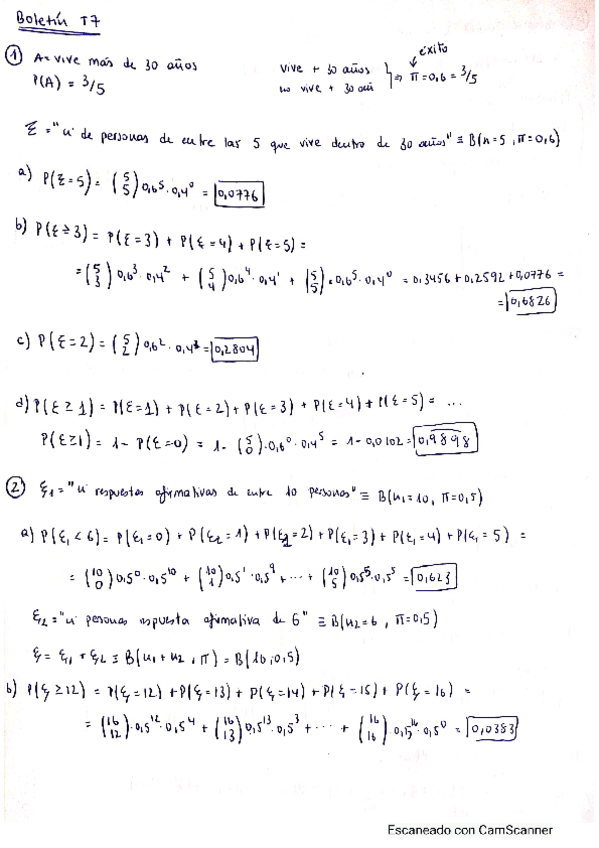 Boletín T7
① A = vive más de 30 años
P(A) = 3/5
vive + 30 años
no vive + 30 añ
⇒ π = 0,6 = 3/5
éxito
ξ = "nº de personas de entre las 5 que vive dentro de 30 años" ≡ B(n=5, π=0,6)
a) P(ξ=5) = (5 5) 0,6⁵ · 0,4⁰ = 0,0776
b) P(ξ≥3) = P(ξ=3) + P(ξ=4) + P(ξ=5) =
= (5 3) 0,6³ · 0,4² + (5 4) 0,6⁴ · 0,4¹ + (5 5) · 0,6⁵ · 0,4⁰ = 0,3456 + 0,2592 + 0,0776 =
= 0,6826
c) P(ξ=2) = (5 2) 0,6² · 0,4³ = 0,2804
d) P(ξ≥1) = P(ξ=1) + P(ξ=2) + P(ξ=3) + P(ξ=4) + P(ξ=5) = ...
P(ξ≥1) = 1 - P(ξ=0) = 1 - (5 0) · 0,6⁰ · 0,4⁵ = 1 - 0,0102 = 0,9898
② ξ₁ = "nº respuestas afirmativas de entre 10 personas" ≡ B(n₁=10, π=0,5)
a) P(ξ₁<6) = P(ξ₁=0) + P(ξ₂=1) + P(ξ₂=2) + P(ξ₁=3) + P(ξ₁=4) + P(ξ₁=5) =
= (10 0) 0,5⁰ · 0,5¹⁰ + (10 1) 0,5¹ · 0,5⁹ + ... + (10 5) 0,5⁵ · 0,5⁵ = 0,623
ξ₂ = "nº personas respuesta afirmativa de 6" ≡ B(n₂=6, π=0,5)
ξ = ξ₁ + ξ₂ ≡ B(n₁ + n₂, π) = B(16, 0,5)
b) P(ξ≥12) = P(ξ=12) + P(ξ=13) + P(ξ=14) + P(ξ=15) + P(ξ=16) =
= (16 12) · 0,5¹² · 0,5⁴ + (16 13) 0,5¹³ · 0,5³ + ... + (16 16) · 0,5¹⁶ · 0,5⁰ = 0,0383
Escaneado con CamScanner